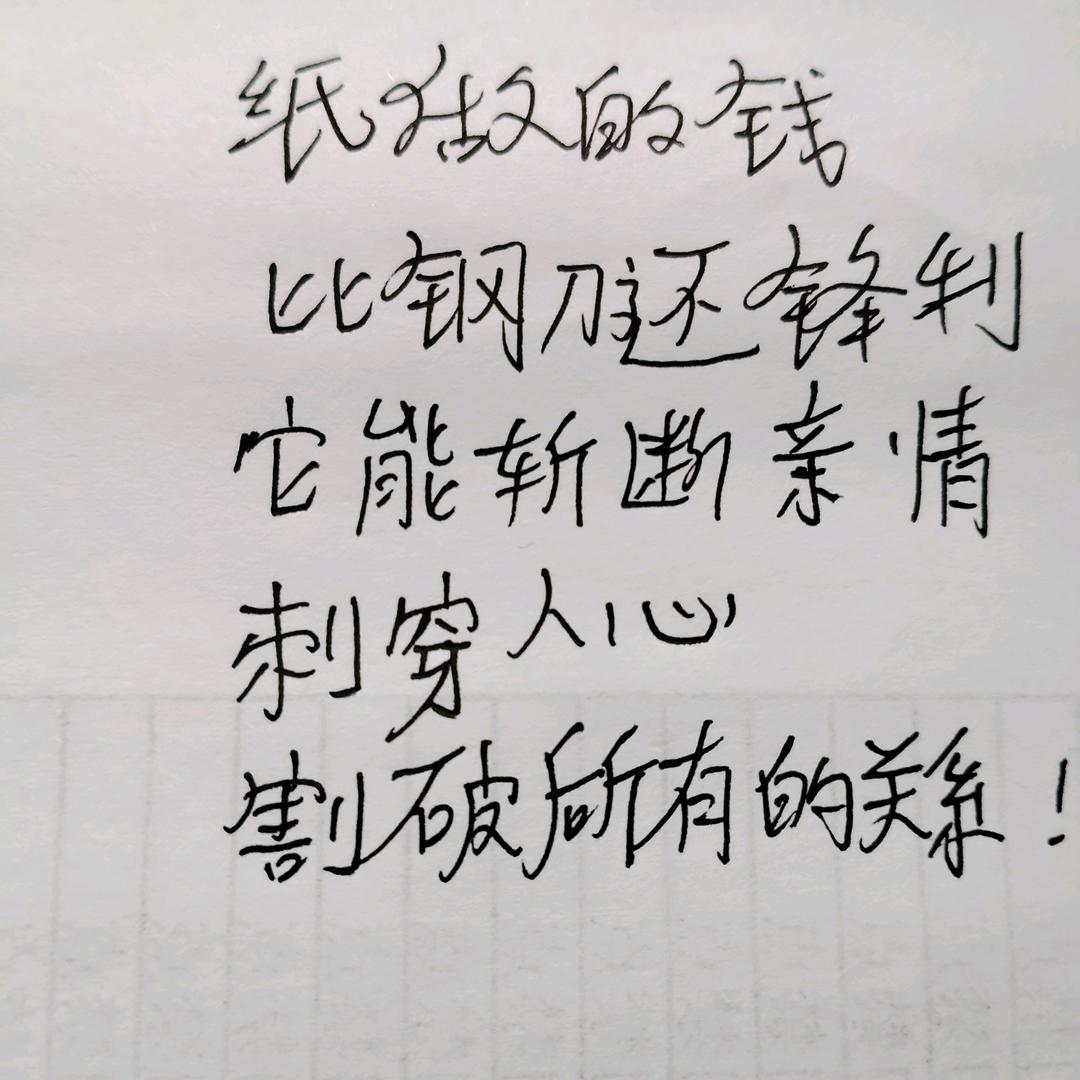 纸做的钱
比钢刀还锋利
它能斩断亲情
刺穿人心
割破所有的关系！